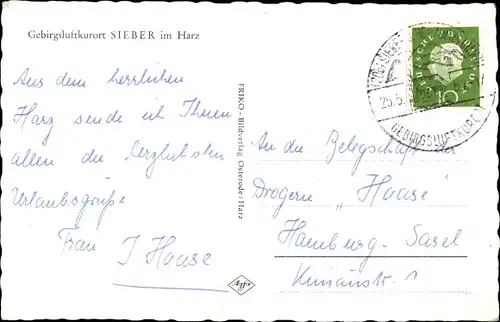 Gebirgsluftkurort SIEBER im Harz
Aus dem herrlichen
Harz sende ich Ihnen
allen die herzlichsten
Urlaubsgrüße
Frau I Haase
FRIKO-Bildverlag Osterode/Harz
DEUTSCHE BUNDESPOST
10
GEBIRGSLUFTKURORT
An die Belegschaft der
Drogerie "Haase"
Hamburg-Sasel